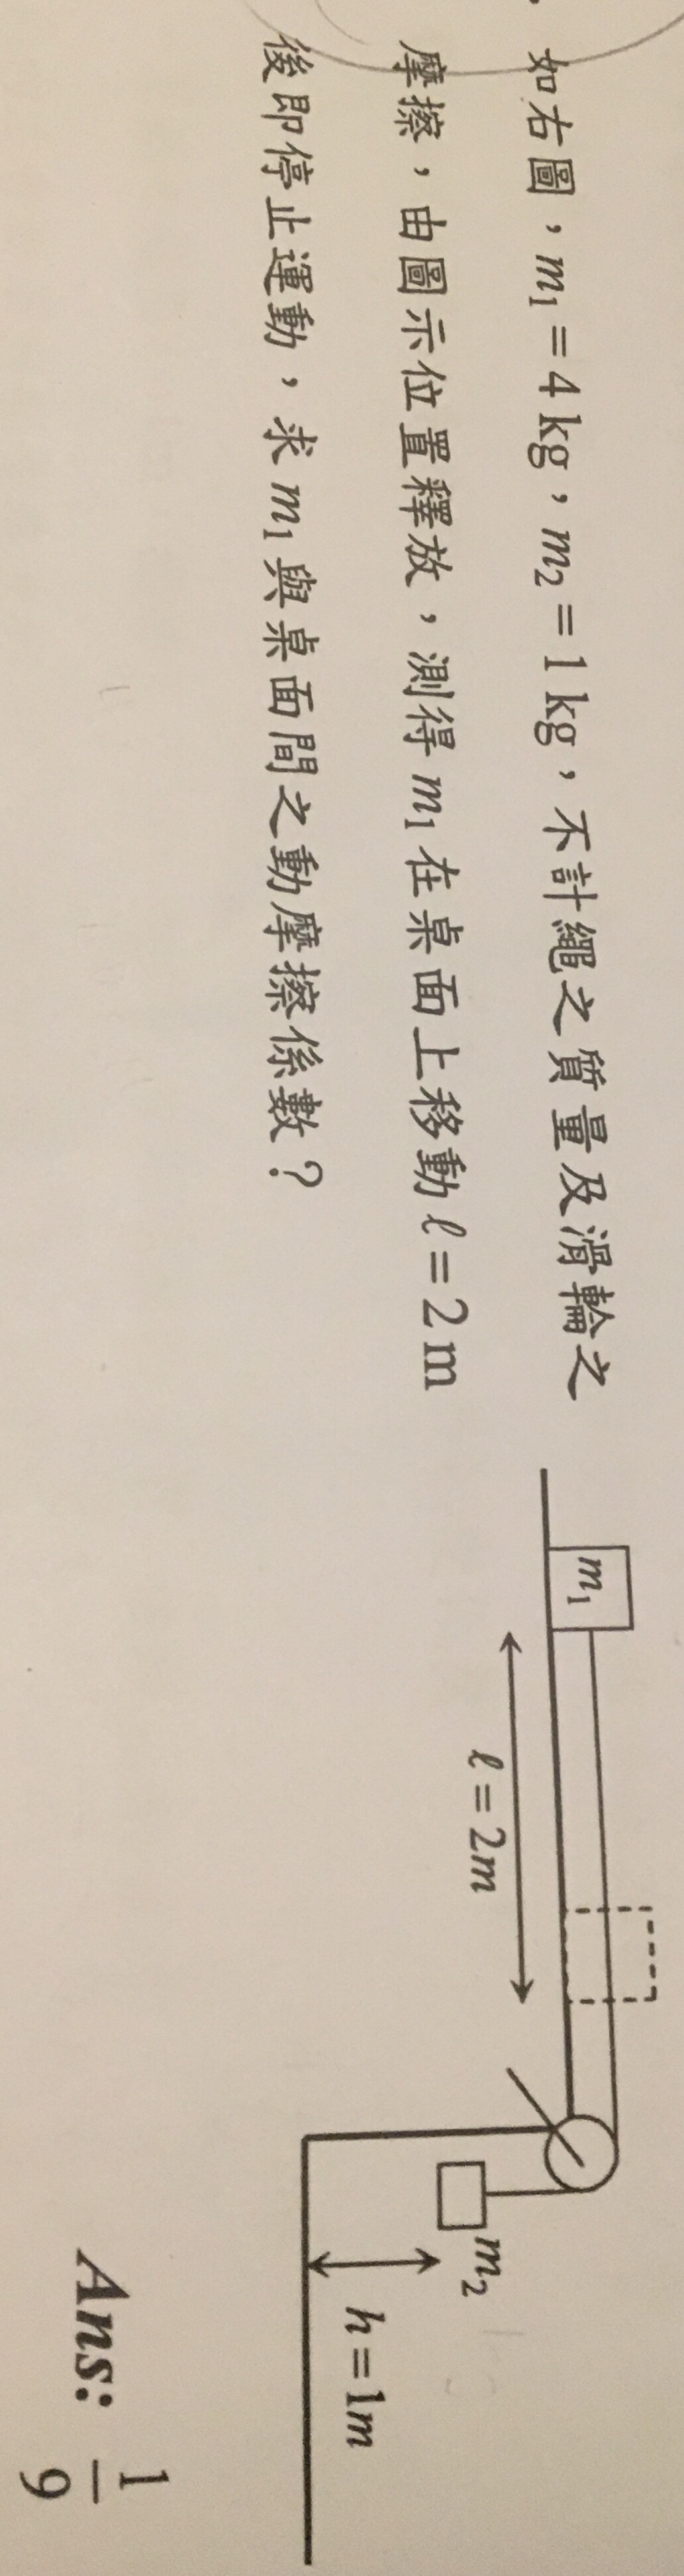 如右圖，m₁ = 4 kg，m₂ = 1 kg，不計繩之質量及滑輪之
摩擦，由圖示位置釋放，測得 m₁ 在桌面上移動 ℓ = 2 m
後即停止運動，求 m₁ 與桌面間之動摩擦係數？
m₁
ℓ = 2m
m₂
h = 1m
Ans: 1/9